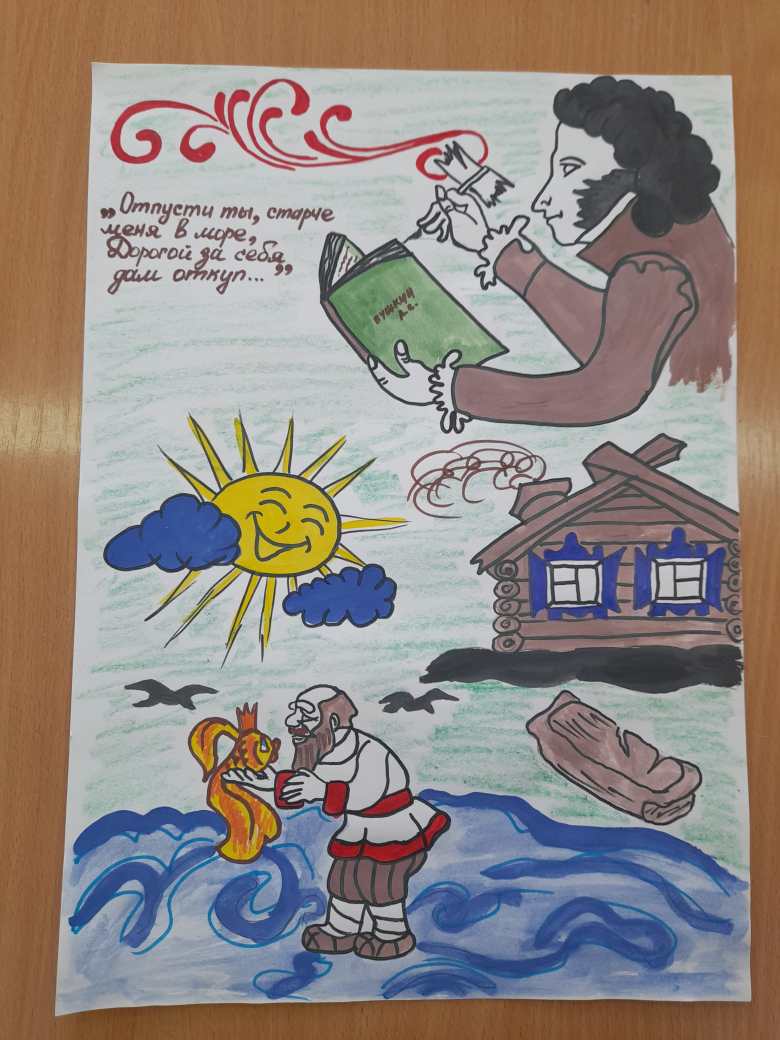 „Отпусти ты, старче
меня в море,
Дорогой за себя
дам откуп..."
ПУШКИН
А.С.